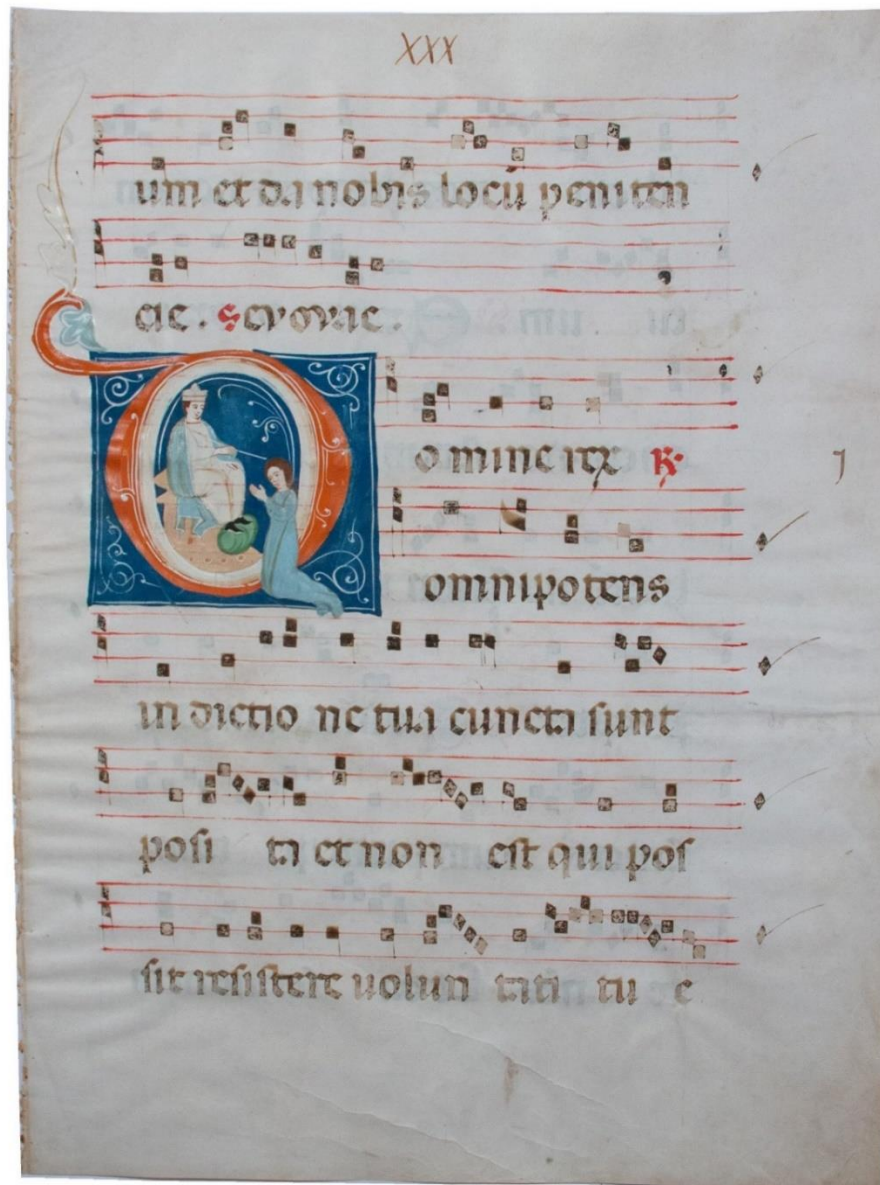 XXX
um et da nobis locū peniten
cie. Sevovae.
Domine rex ℟.
omnipotens
in dictio ne tua cuncta sunt
posi ta et non est qui pos
sit resistere uolun tati tu e